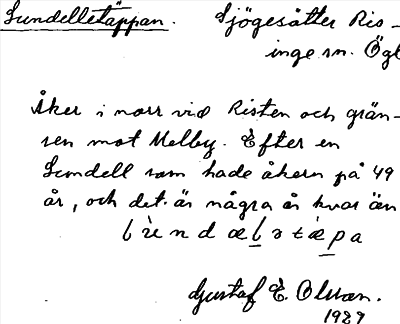 Sundelletäppan. Sjögesätter Ris-
inge sn. Ögl
Åker i norr vid Risten och grän-
sen mot Melby. Efter en
Sundell som hade åkern på 49
år, och det är några år kvar än
Gustaf E. Olsson.
1929